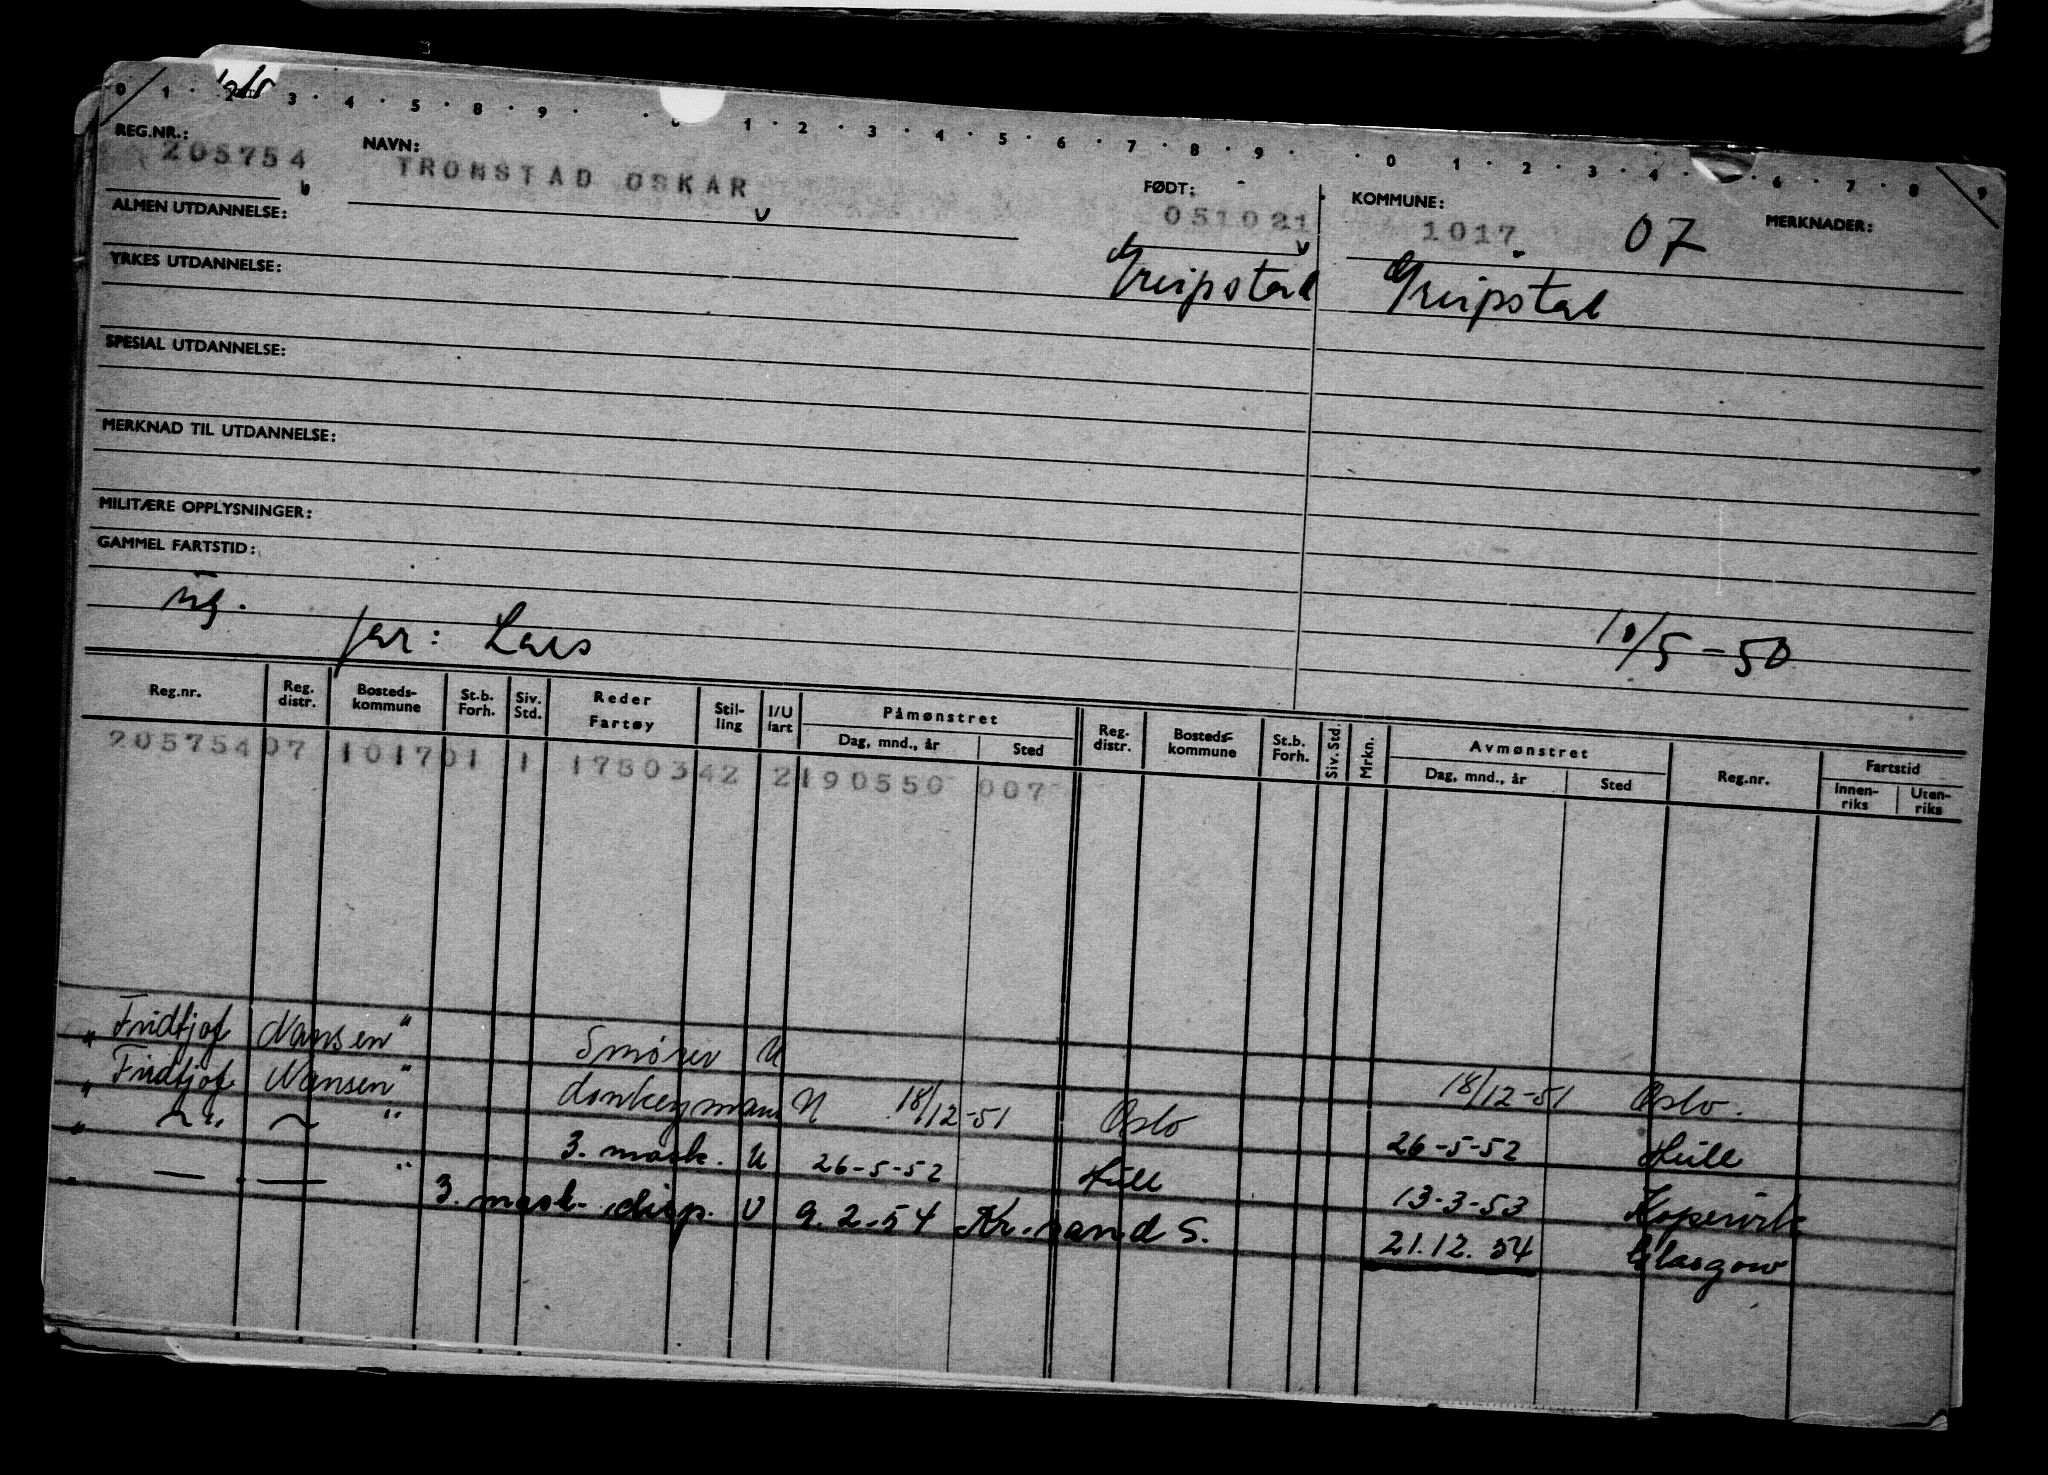 0 1 · 2 · 3 · 4 · 5 · 8 · 9 · · 1 · 2 · 3 · 4 · 5 · 6 · 7 · 8 · 9 · · 0 1 · 2 · 3 · 4 · · 6 · 7 · 8 · 9
REG.NR.: NAVN: FØDT: KOMMUNE: MERKNADER:
205754 TRONSTAD OSKAR 051021 1017 07
ALMEN UTDANNELSE:
Greipstad Greipstad
YRKES UTDANNELSE:
SPESIAL UTDANNELSE:
MERKNAD TIL UTDANNELSE:
MILITÆRE OPPLYSNINGER:
GAMMEL FARTSTID:
ug. far: Lars 10/5-50
Reg.nr. Reg. distr. Bosteds- kommune St.b. Forh. Siv. Std. Reder Fartøy Stil- ling I/U fart Påmønstret Dag, mnd., år Sted Reg. distr. Bosteds- kommune St.b. Forh. Siv. Std. Mrkn. Avmønstret Dag, mnd., år Sted Reg.nr. Fartstid Innen- riks Uten- riks
205754 07 1017 01 1 1780342 2 190550 007
„ Fridtjof Nansen" Smører U 18/12-51 Oslo.
„ Fridtjof Nansen" donkeyman U 18/12-51 Oslo 26-5-52 Hull
„ — " — " 3. mask. U 26-5-52 Hull 13-3-53 Kopervik
„ — " — " 3. mask. disp. U 9.2-54 Kr.sand S. 21.12.54 Glasgow